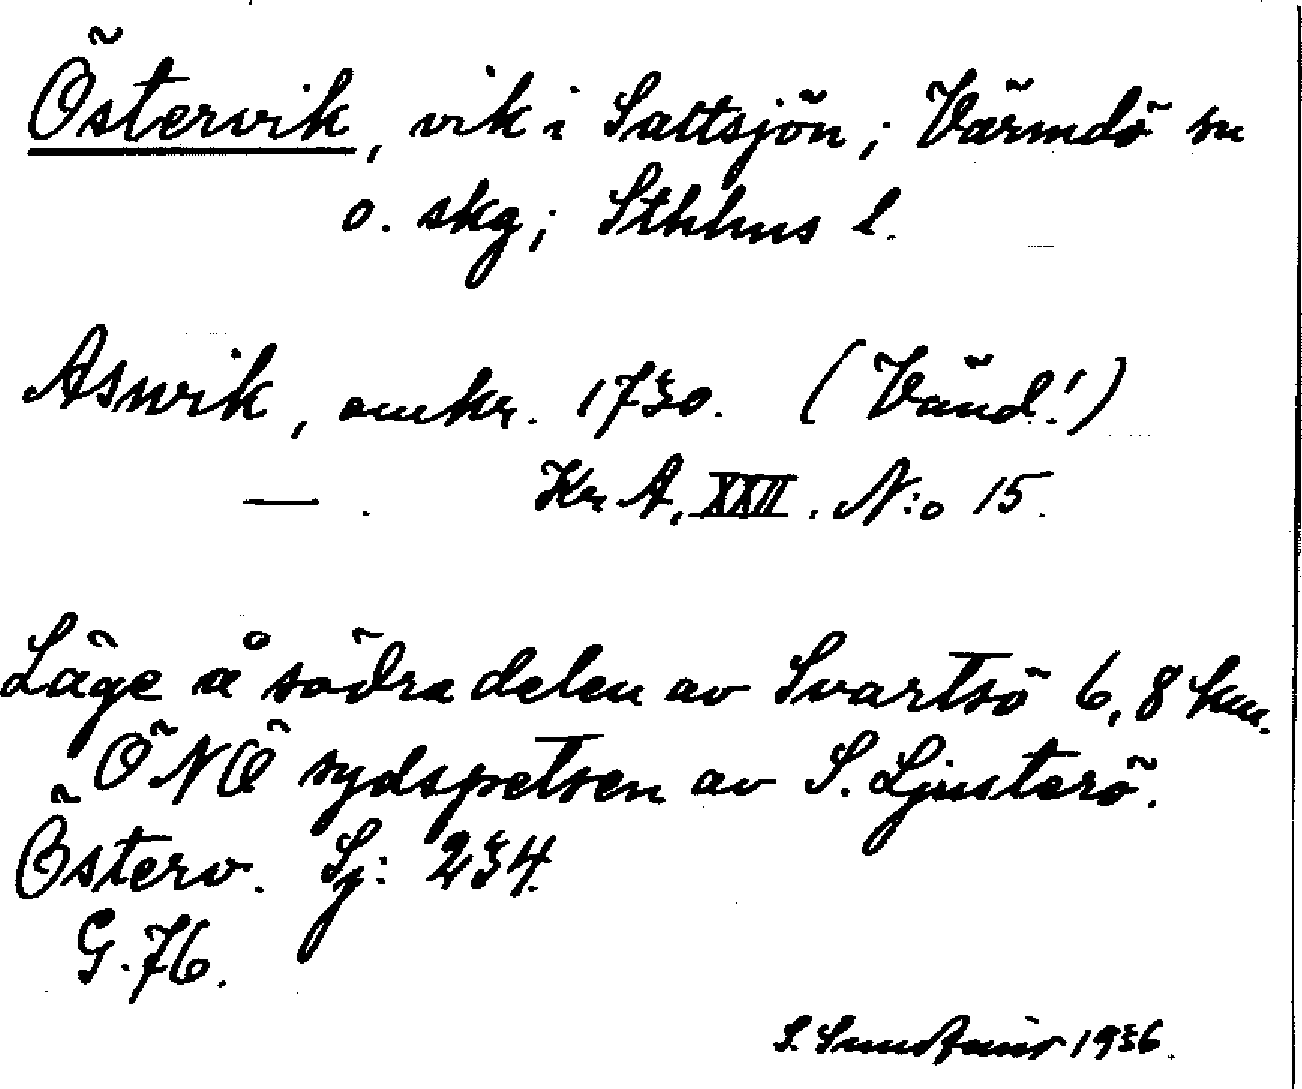 Östervik, vik i Saltsjön; Värmdö sn
o. skg; Sthlms l.
Aswik, omkr. 1730. (Vänd!)
— . Kr. A. XXII. N:o 15.
Läge å södra delen av Svartsö 6,8 km.
ÖNÖ sydspetsen av S. Ljusterö.
Österv. Sj: 234.
G. 76.
S. 1936.